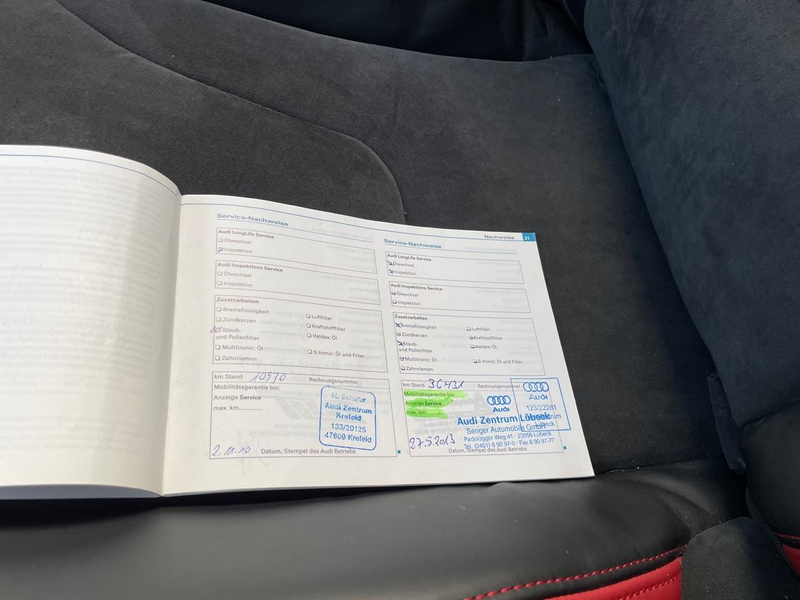 Service-Nachweise
Audi LongLife Service
Ölwechsel
Inspektion
Audi Inspektions Service
Ölwechsel
Inspektion
Zusatzarbeiten
Bremsflüssigkeit
Luftfilter
Zündkerzen
Kraftstofffilter
Staub-
und Pollenfilter
Haldex: Öl
Multitronic: Öl
S tronic: Öl und Filter
Zahnriemen
km Stand 10930 Rechnungsnummer
Mobilitätsgarantie bis:
Anzeige Service
max. km
Audi Zentrum
Krefeld
133/20125
47809 Krefeld
2.11.10
Datum, Stempel des Audi Betriebs
Nachweise 21
Service-Nachweise
Audi LongLife Service
Ölwechsel
Inspektion
Audi Inspektions Service
Ölwechsel
Inspektion
Zusatzarbeiten
Bremsflüssigkeit
Luftfilter
Zündkerzen
Kraftstofffilter
Staub-
und Pollenfilter
Haldex: Öl
Multitronic: Öl
S tronic: Öl und Filter
Zahnriemen
km Stand 36431 Rechnungsnummer
Mobilitätsgarantie bis:
Anzeige Service
max. km
Audi
Audi
123/22281
Audi Zentrum Lübeck
Senger Automobile GmbH
Lübeck
Padelügger Weg 41 · 23556 Lübeck
27.5.2013
Datum, Stempel des Audi Betriebs